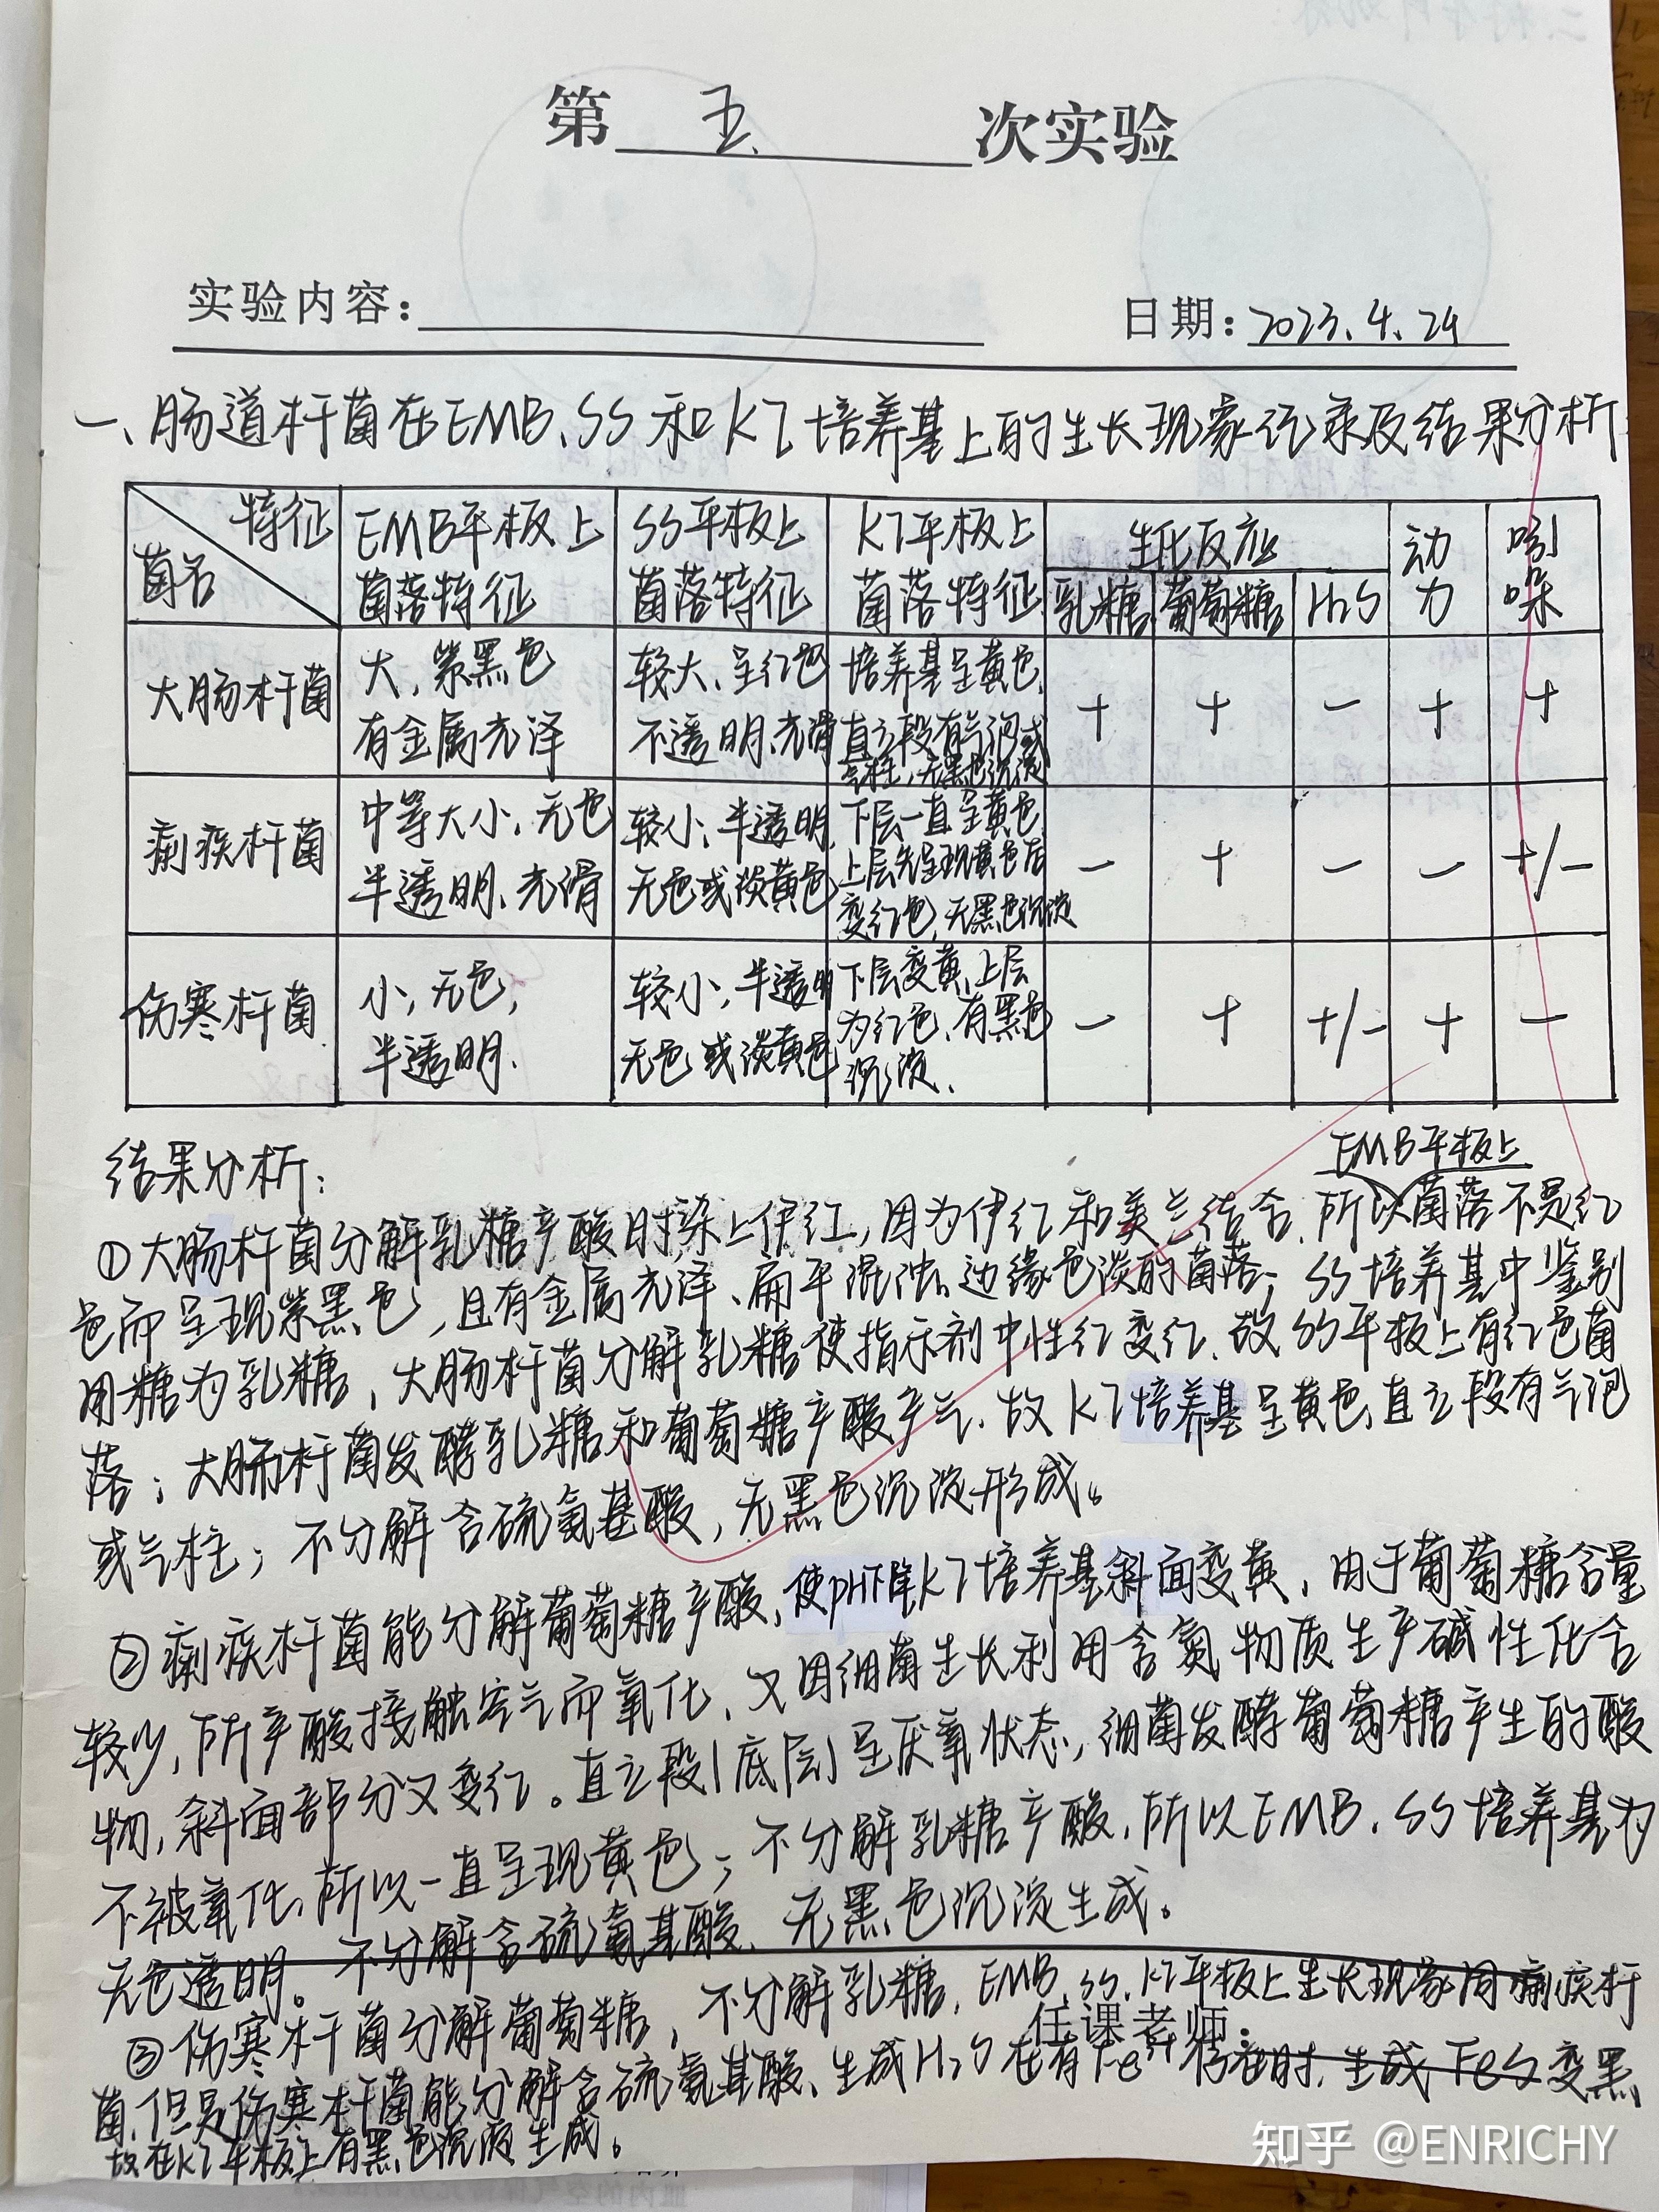 第 五 次实验
实验内容： 日期：2023.4.24
一、肠道杆菌在EMB、SS和KI培养基上的生长现象记录及结果分析
特征 菌名 EMB平板上菌落特征 SS平板上菌落特征 KI平板上菌落特征 生化反应 动力 吲哚
乳糖 葡萄糖 H₂S
大肠杆菌 大，紫黑色 有金属光泽 较大、呈红色 不透明、光滑 培养基呈黄色，直立段有气泡或气柱，无黑色沉淀 + + - + +
痢疾杆菌 中等大小，无色 半透明、光滑 较小，半透明，无色或淡黄色 下层一直呈黄色 上层先呈现黄色后变红色，无黑色沉淀 - + - - +/-
伤寒杆菌 小，无色，半透明. 较小，半透明 无色或淡黄色 下层变黄，上层为红色，有黑色沉淀. - + +/- + -
结果分析：
EMB平板上
①大肠杆菌分解乳糖产酸时染上伊红，因为伊红和美兰结合，所以菌落不是红
色而呈现紫黑色，且有金属光泽、扁平混浊、边缘色淡的菌落；SS培养基中鉴别
用糖为乳糖，大肠杆菌分解乳糖使指示剂中性红变红，故SS平板上有红色菌
落；大肠杆菌发酵乳糖和葡萄糖产酸产气，故KI培养基呈黄色，直立段有气泡
或气柱；不分解含硫氨基酸，无黑色沉淀形成。
②痢疾杆菌能分解葡萄糖产酸，使pH下降KI培养基斜面变黄，由于葡萄糖含量
较少，所产酸接触空气而氧化，又因细菌生长利用含氮物质生产碱性化合
物，斜面部分又变红。直立段(底层)呈厌氧状态，细菌发酵葡萄糖产生的酸
不被氧化，所以一直呈现黄色；不分解乳糖产酸，所以EMB、SS培养基为
无色透明。不分解含硫氨基酸，无黑色沉淀生成。
③伤寒杆菌分解葡萄糖，不分解乳糖，EMB、SS、KI平板上生长现象同痢疾杆
任课老师：
菌，但是伤寒杆菌能分解含硫氨基酸、生成H₂S在有Fe²⁺存在时，生成FeS变黑，
故在KI平板上有黑色沉淀生成。
知乎 @ENRICHY